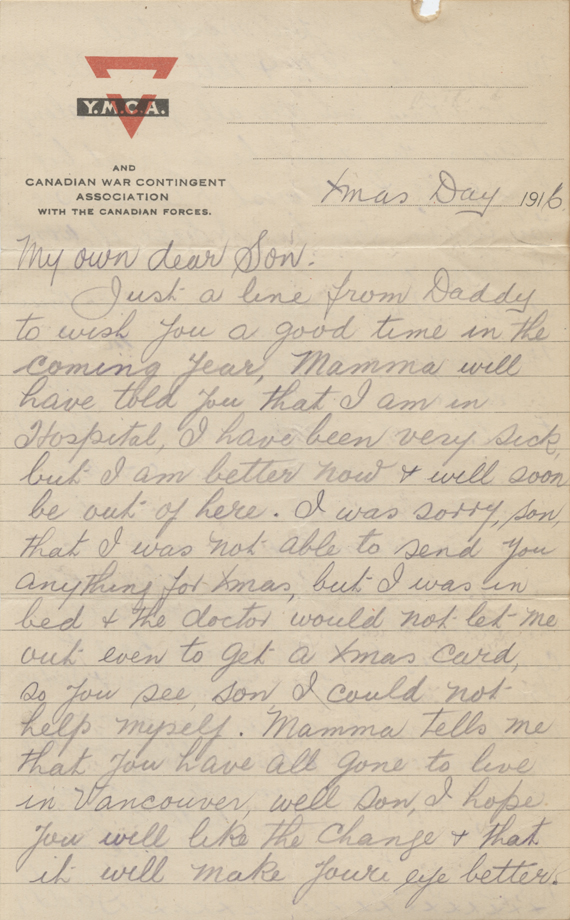 Y.M.C.A.
AND
CANADIAN WAR CONTINGENT
ASSOCIATION
WITH THE CANADIAN FORCES.
Xmas Day 1916
My own dear Son.
Just a line from Daddy
to wish you a good time in the
coming year, Mamma will
have told you that I am in
Hospital, I have been very sick,
but I am better now & will soon
be out of here. I was sorry, son,
that I was not able to send you
anything for Xmas, but I was in
bed & the doctor would not let me
out even to get a Xmas card,
so you see, son I could not
help myself. Mamma tells me
that you have all gone to live
in Vancouver, well son, I hope
you will like the change & that
it will make youre eye better.